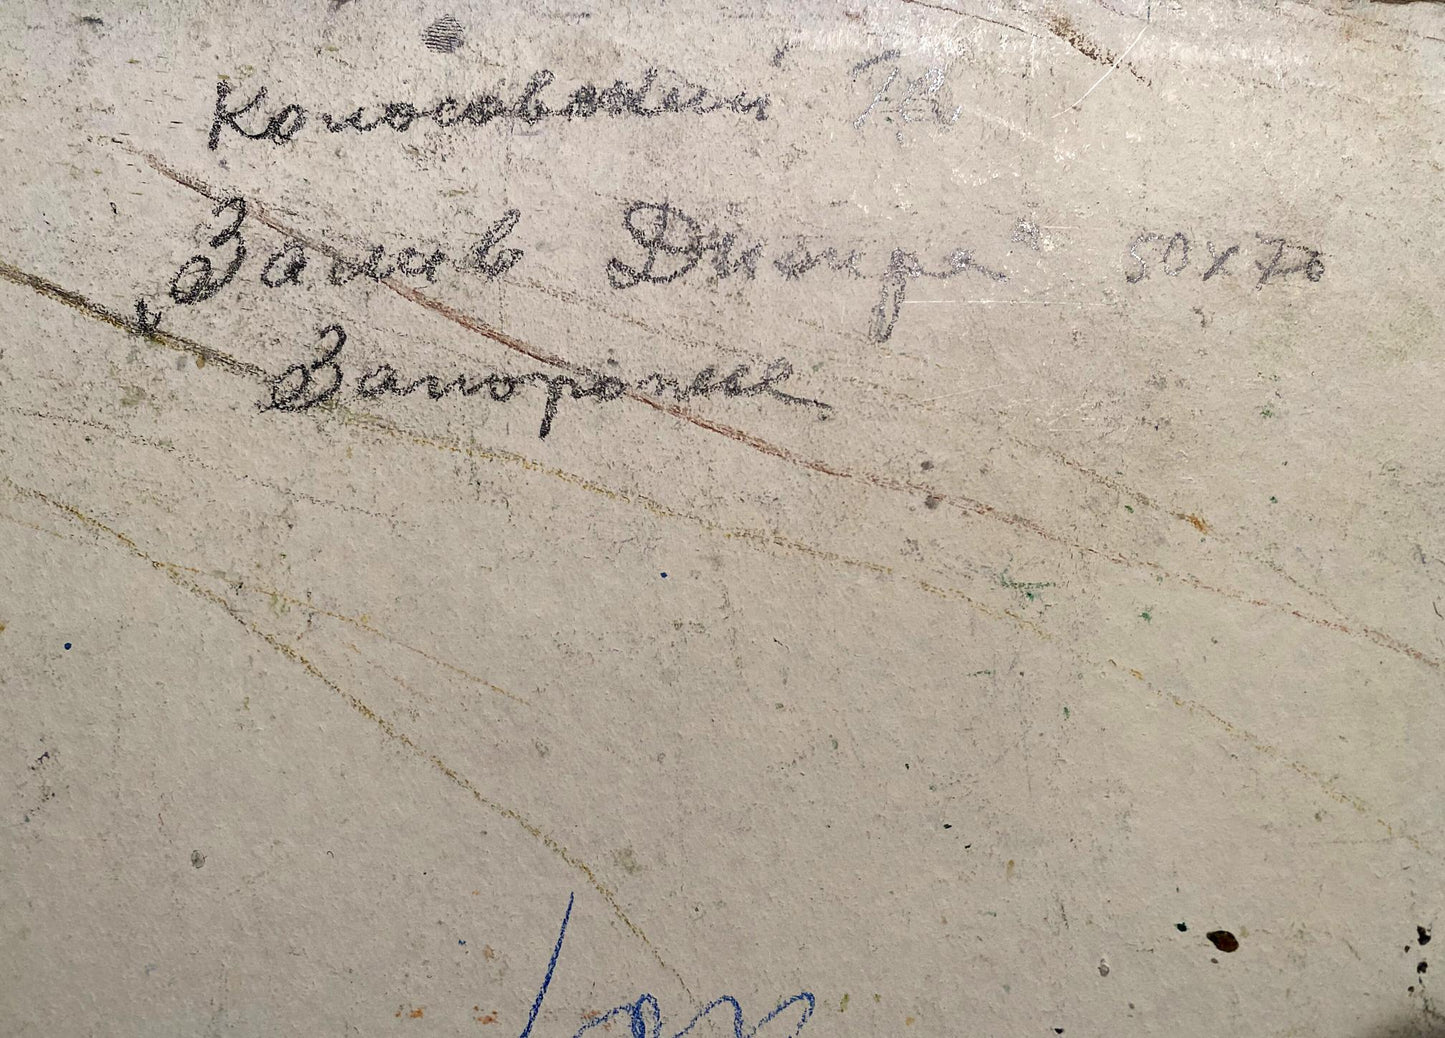 Колосовский Г.В.
"Залив Днепра" 50х70
Запорожье